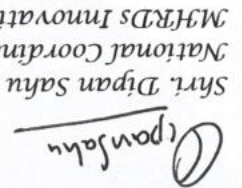 Dipan Sahu
Shri. Dipan Sahu
National Coordin
MHRDs Innovati